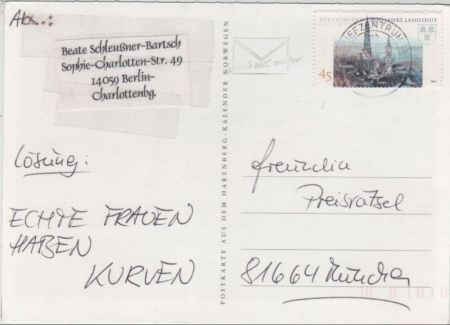 Abs.:
Beate Schleußner-Bartsch
Sophie-Charlotten-Str. 49
14059 Berlin-
Charlottenbg.
Lösung:
ECHTE FRAUEN
HABEN
KURVEN
POSTKARTE AUS DEM HARENBERG-KALENDER NORWEGEN
DEUTSCHLAND
JAHRE LANDSHUT
45
EFZENTRUM
freundin
Preisrätsel
81664 München